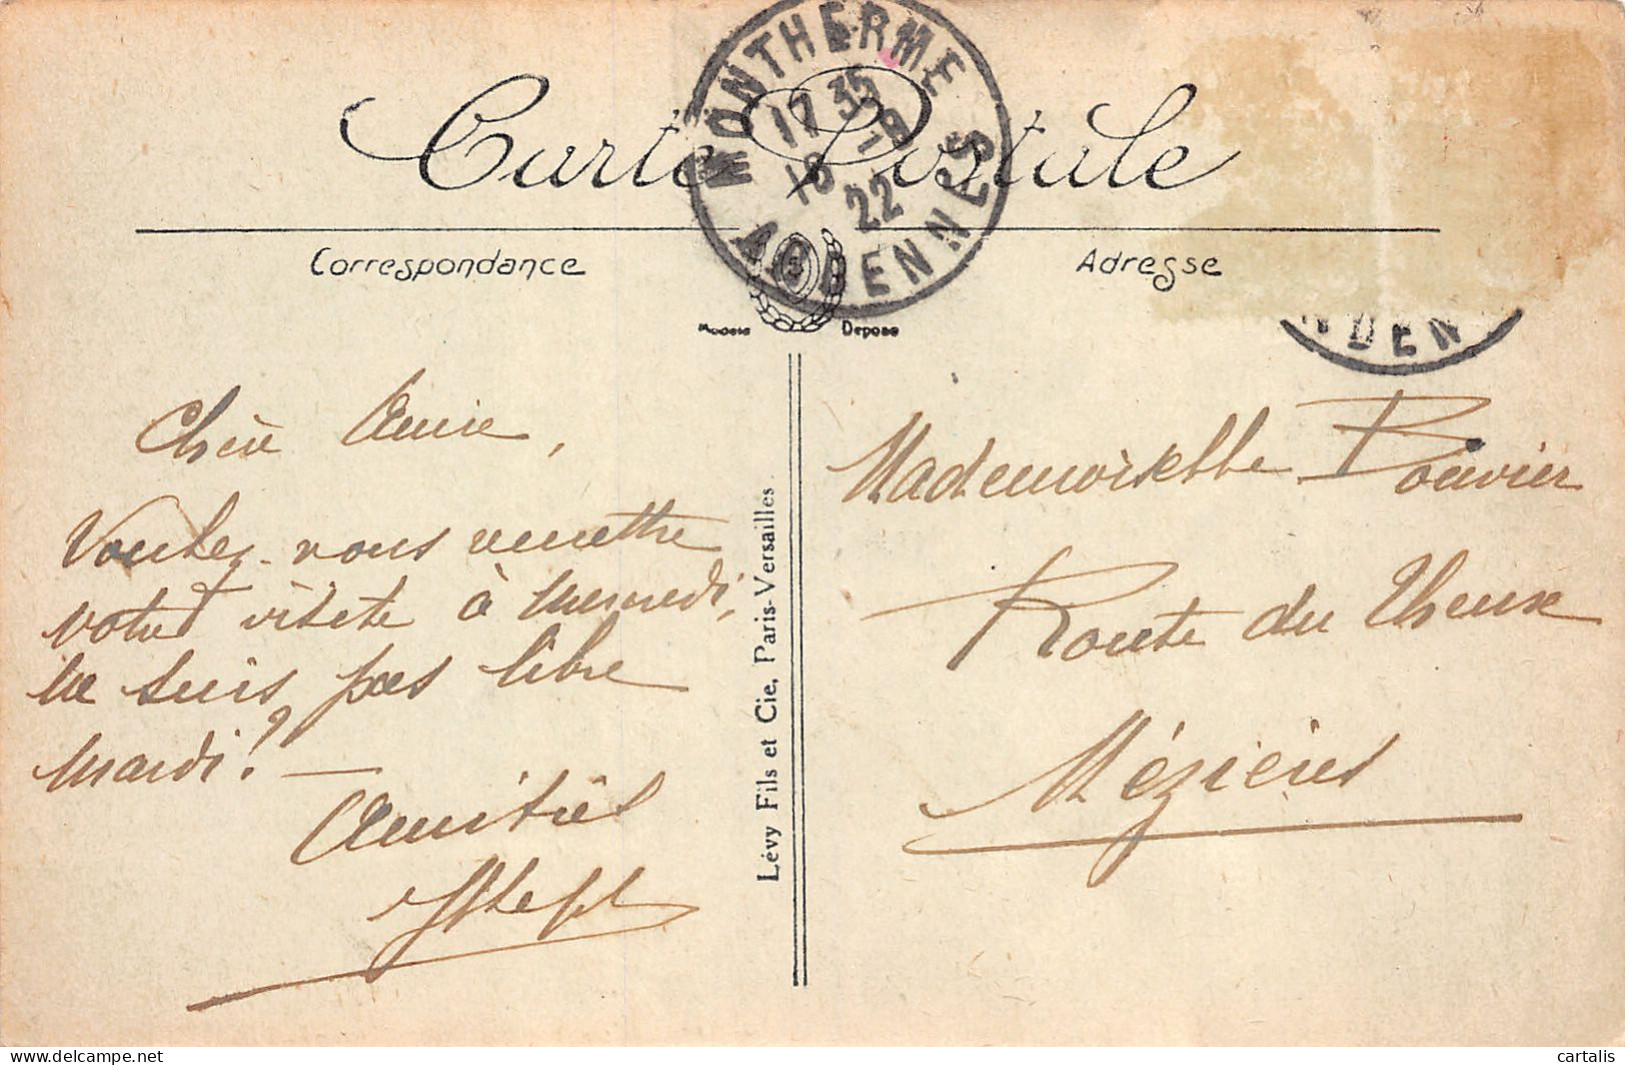 Carte Postale
MONTHERME
17 35
18 -9
22
ARDENNES
Correspondance
Adresse
Modele Deposé
RDEN
Chère Amie,
Voulez-vous remettre
votre visite à mercredi,
ne suis pas libre
mardi? —
Amitiés
Mademoiselle Bouvier
Route du Theux
Mézières
Lévy Fils et Cie, Paris-Versailles
delcampe.net
cartalis